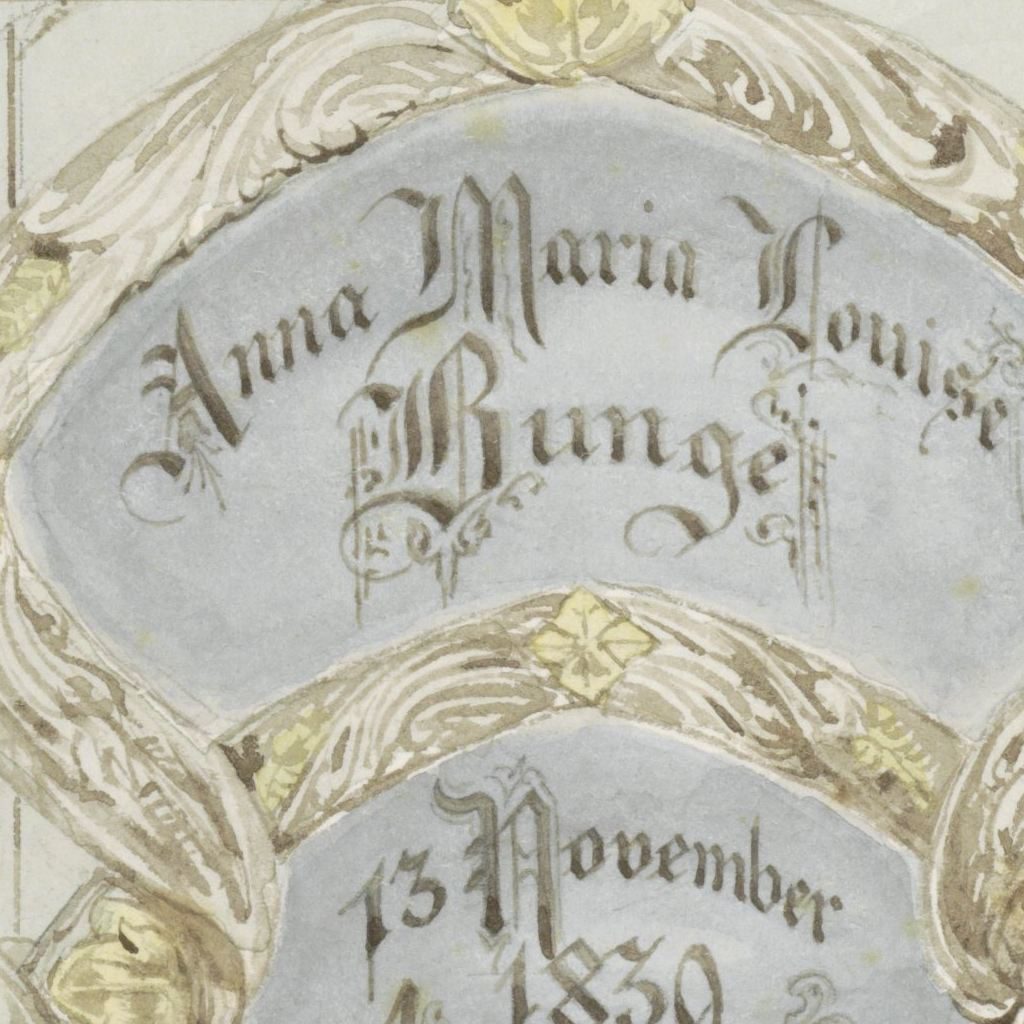 Anna Maria Louise
Bunge
13 November
1839